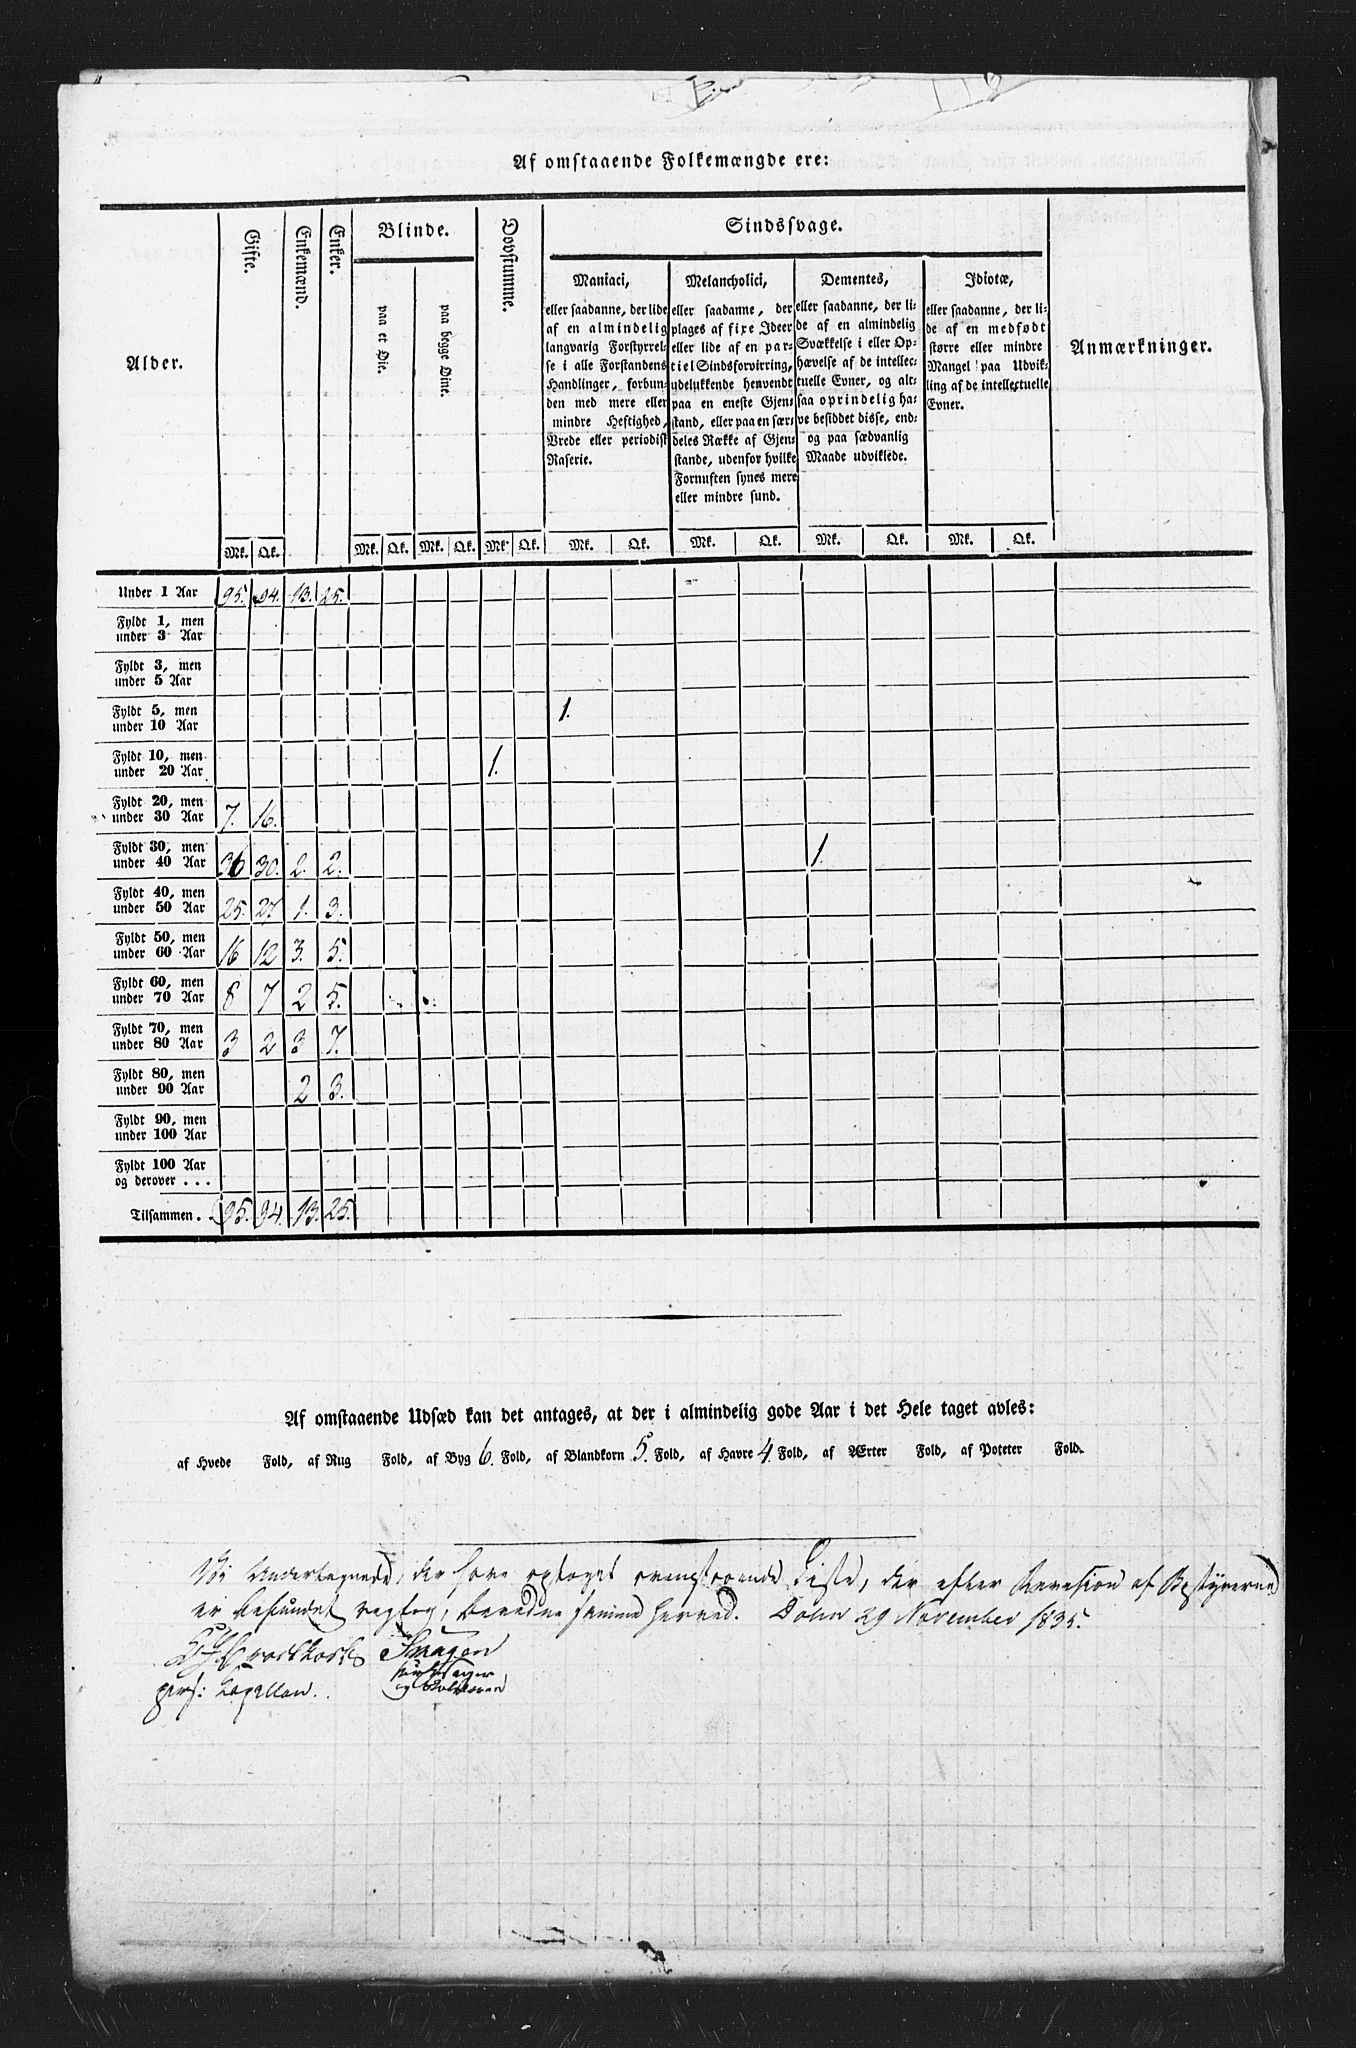 Af omstaaende Folkemængde ere:
Alder. Gifte. Enkemænd. Enker. Blinde. Dovstumme. Sindssvage. Anmærkninger.
paa et Øie. paa begge Øine.
Maniaci,
eller saadanne, der lide
af en almindelig
langvarig Forstyrrel-
se i alle Forstandens
Handlinger, forbun-
den med mere eller
mindre Heftighed,
Vrede eller periodisk
Raserie.
Melancholici,
eller saadanne, der
plages af fixe Ideer
eller lide af en par-
tiel Sindsforvirring,
udelukkende henvendt
paa en eneste Gjen-
stand, eller paa en sær-
deles Række af Gjen-
stande, udenfor hvilke
Fornuften synes mere
eller mindre sund.
Dementes,
eller saadanne, der li-
de af en almindelig
Svækkelse i eller Op-
hævelse af de intellec-
tuelle Evner, og alt-
saa oprindelig ha-
ve besiddet disse, end-
og paa sædvanlig
Maade udviklede.
Idiotæ,
eller saadanne, der li-
de af en medfødt
større eller mindre
Mangel paa Udvik-
ling af de intellectuelle
Evner.
Mk. Qk. Mk. Qk. Mk. Qk. Mk. Qk. Mk. Qk. Mk. Qk. Mk. Qk. Mk. Qk.
Under 1 Aar 95. 94. 13. 25.
Fyldt 1, men
under 3 Aar
Fyldt 3, men
under 5 Aar
Fyldt 5, men
under 10 Aar 1.
Fyldt 10, men
under 20 Aar 1.
Fyldt 20, men
under 30 Aar 7. 16.
Fyldt 30, men
under 40 Aar 36 30. 2. 2. 1.
Fyldt 40, men
under 50 Aar 25. 27 1. 3.
Fyldt 50, men
under 60 Aar 16 12 3. 5.
Fyldt 60, men
under 70 Aar 8 7 2 5.
Fyldt 70, men
under 80 Aar 3 2 3 7.
Fyldt 80, men
under 90 Aar 2 3.
Fyldt 90, men
under 100 Aar
Fyldt 100 Aar
og derover . . .
Tilsammen. . 95. 94. 13. 25.
Af omstaaende Udsæd kan det antages, at der i almindelig gode Aar i det Hele taget avles:
af Hvede Fold, af Rug Fold, af Byg 6. Fold, af Blandkorn 5. Fold, af Havre 4. Fold, af Ærter Fold, af Poteter Fold.
Vi Undertegnede, der have optaget ovenstaaende Liste, der efter Revision af Bestyrerne
er befundet rigtig, bevidne samme herved. 29 November 1835.
pers: Capellan.